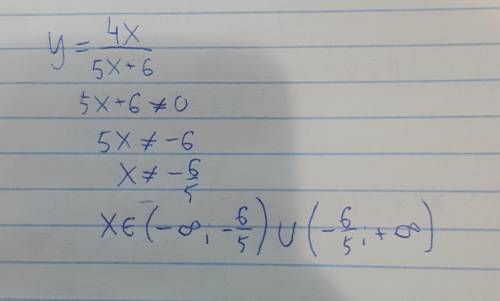 y = 4x / 5x+6
5x+6 ≠ 0
5x ≠ -6
x ≠ - 6/5
x ∈ (-∞; - 6/5) ∪ (- 6/5; +∞)